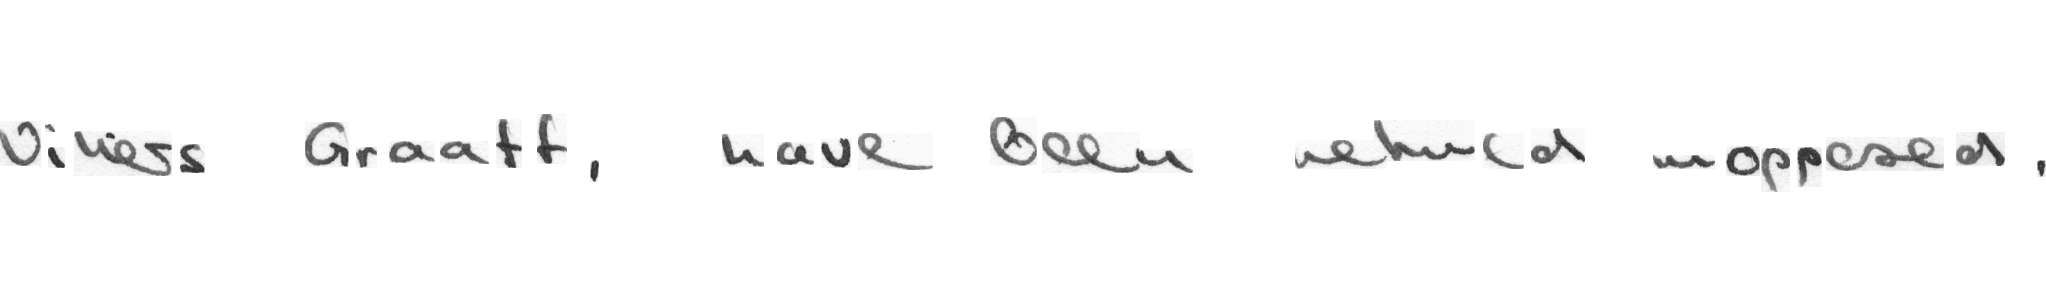 Villiers Graaff, have been returned unopposed.